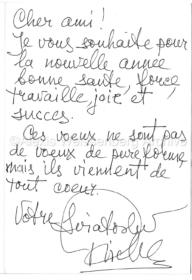 Cher ami!
Je vous souhaite pour
la nouvelle année
bonne santé, force
travaille joie et
succes.
Ces voeux ne sont pas
de voeux de pure forme
mais ils viennent de
tout coeur.
Votre Sviatoslav